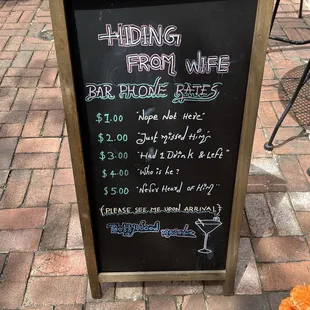 HIDING
FROM WIFE
BAR PHONE RATES
$1.00 "Nope Not Here"
$2.00 "Just missed Him"
$3.00 "Had 1 Drink & Left"
$4.00 "Who is he?
$5.00 "Never Heard of Him"
(PLEASE SEE ME UPON ARRIVAL)